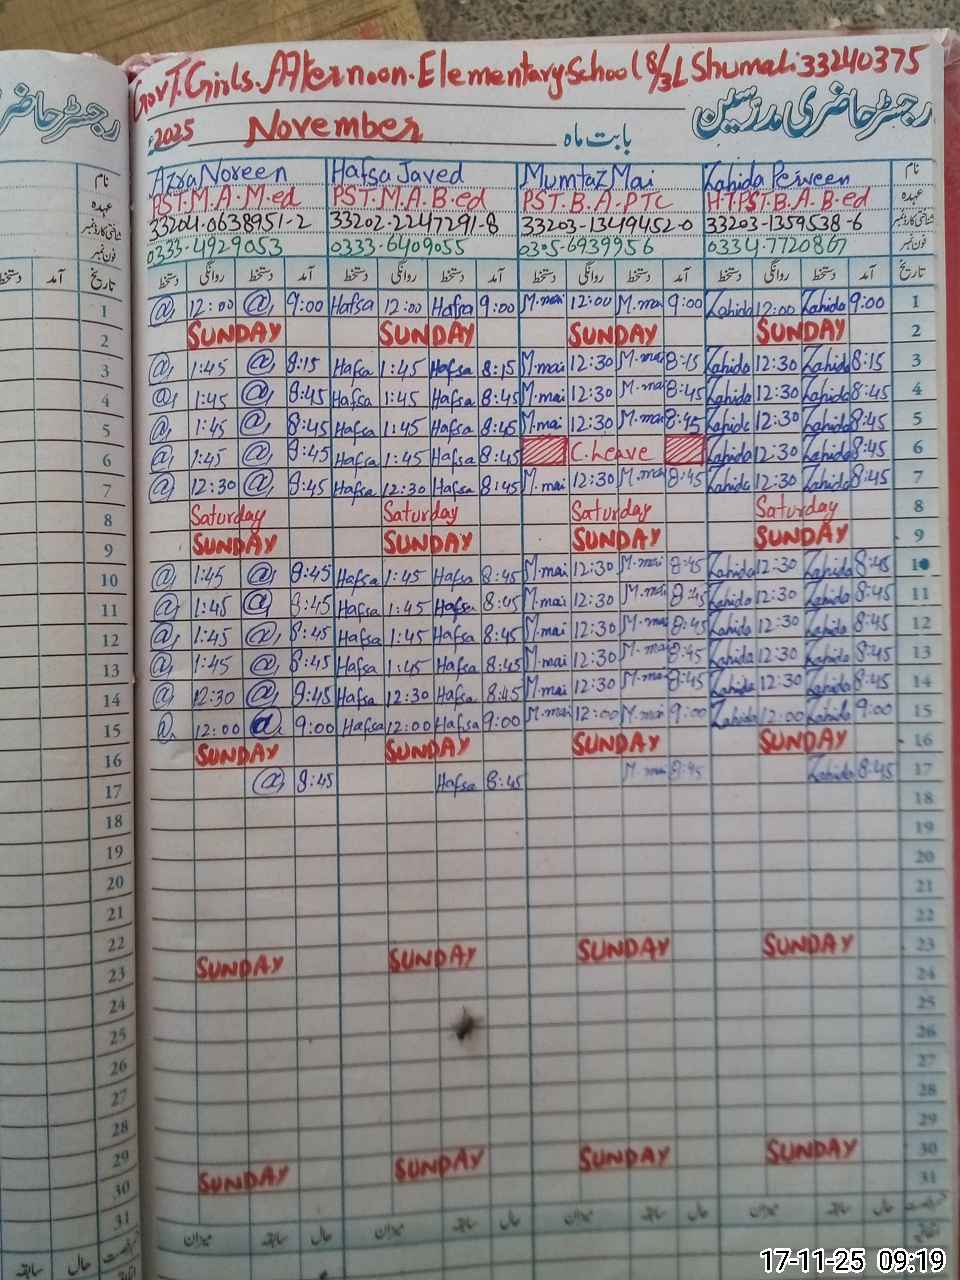 GovT.Girls.AFternoon.Elementary School 8/3L Shumali 33240375
رجسٹر حاضری مدرسین
2025 November بابت ماہ
Azra Noreen Hafsa Javed Mumtaz Mai Zahida Perveen نام
PST.M.A.M.ed PST.M.A.B.ed PST.B.A.PTC H.T.PST.B.A.B.ed عہدہ
33204-0638951-2 33202-2247291-8 33203-1349452-0 33203-1359538-6 شناختی کارڈ نمبر
0333-4929053 0333-6409055 0305-6939956 0334-7720867 فون نمبر
دستخط روانگی دستخط آمد دستخط روانگی دستخط آمد دستخط روانگی دستخط آمد دستخط روانگی دستخط آمد تاریخ
@ 12:00 @ 9:00 Hafsa 12:00 Hafsa 9:00 M.mai 12:00 M.mai 9:00 Zahida 12:00 Zahida 9:00 1
SUNDAY SUNDAY SUNDAY SUNDAY 2
@ 1:45 @ 8:15 Hafsa 1:45 Hafsa 8:15 M.mai 12:30 M.mai 8:15 Zahida 12:30 Zahida 8:15 3
@ 1:45 @ 8:45 Hafsa 1:45 Hafsa 8:45 M.mai 12:30 M.mai 8:45 Zahida 12:30 Zahida 8:45 4
@ 1:45 @ 8:45 Hafsa 1:45 Hafsa 8:45 M.mai 12:30 M.mai 8:45 Zahida 12:30 Zahida 8:45 5
@ 1:45 @ 8:45 Hafsa 1:45 Hafsa 8:45 C.Leave Zahida 12:30 Zahida 8:45 6
@ 12:30 @ 8:45 Hafsa 12:30 Hafsa 8:45 M.mai 12:30 M.mai 8:45 Zahida 12:30 Zahida 8:45 7
Saturday Saturday Saturday Saturday 8
SUNDAY SUNDAY SUNDAY SUNDAY 9
@ 1:45 @ 8:45 Hafsa 1:45 Hafsa 8:45 M.mai 12:30 M.mai 8:45 Zahida 12:30 Zahida 8:45 10
@ 1:45 @ 8:45 Hafsa 1:45 Hafsa 8:45 M.mai 12:30 M.mai 8:45 Zahida 12:30 Zahida 8:45 11
@ 1:45 @ 8:45 Hafsa 1:45 Hafsa 8:45 M.mai 12:30 M.mai 8:45 Zahida 12:30 Zahida 8:45 12
@ 1:45 @ 8:45 Hafsa 1:45 Hafsa 8:45 M.mai 12:30 M.mai 8:45 Zahida 12:30 Zahida 8:45 13
@ 12:30 @ 8:45 Hafsa 12:30 Hafsa 8:45 M.mai 12:30 M.mai 8:45 Zahida 12:30 Zahida 8:45 14
@ 12:00 @ 9:00 Hafsa 12:00 Hafsa 9:00 M.mai 12:00 M.mai 9:00 Zahida 12:00 Zahida 9:00 15
SUNDAY SUNDAY SUNDAY SUNDAY 16
@ 8:45 Hafsa 8:45 M.mai 8:45 Zahida 8:45 17
18
19
20
21
22
SUNDAY SUNDAY SUNDAY SUNDAY 23
24
25
26
27
28
29
SUNDAY SUNDAY SUNDAY SUNDAY 30
31
میزان سابقہ حال میزان سابقہ حال میزان سابقہ حال میزان سابقہ حال
17-11-25 09:19